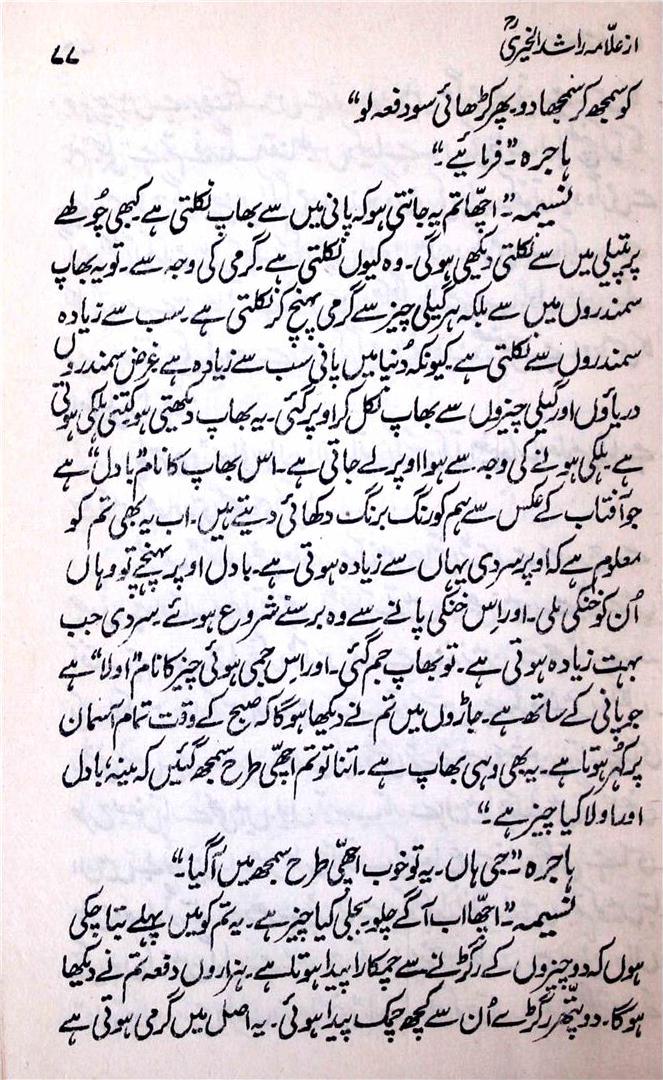 از علّامہ راشد الخیریؒ
۷۷
کو سمجھ کر سمجھا دو پھر کڑھائی سو دفعہ لو“
ہاجرہ۔”فرمائیے۔“
نسیمہ۔”اچھا تم یہ جانتی ہو کہ پانی میں سے بھاپ نکلتی ہے۔ کبھی چُولھے
پر پتیلی میں سے نکلتی دیکھی ہوگی۔ وہ کیوں نکلتی ہے۔ گرمی کی وجہ سے۔ تو یہ بھاپ
سمندروں میں سے بلکہ ہر گیلی چیز سے گرمی پہنچ کر نکلتی ہے۔ سب سے زیادہ
سمندروں سے نکلتی ہے۔ کیونکہ دُنیا میں پانی سب سے زیادہ ہے غرض سمندروں
دریاؤں اور گیلی چیزوں سے بھاپ نکل کر اوپر گئی۔ یہ بھاپ دیکھتی ہو کتنی ہلکی ہوتی
ہے۔ ہلکی ہونے کی وجہ سے ہوا اوپر لے جاتی ہے۔ اس بھاپ کا نام ”بادل“ ہے
جو آفتاب کے عکس سے ہم کو رنگ برنگ دکھائی دیتے ہیں۔ اب یہ بھی تم کو
معلوم ہے کہ اوپر سردی یہاں سے زیادہ ہوتی ہے۔ بادل اوپر پہنچے تو وہاں
اُن کو خنکی ملی۔ اور اِس خنکی پانے سے وہ برسنے شروع ہوئے۔ سردی جب
بہت زیادہ ہوتی ہے۔ تو بھاپ جم گئی۔ اور اِس جمی ہوئی چیز کا نام ”اولا“ ہے
جو پانی کے ساتھ ہے۔ جاڑوں میں تم نے دیکھا ہوگا کہ صبح کے وقت تمام آسمان
پر کُہر ہوتا ہے۔ یہ بھی وہی بھاپ ہے۔ اتنا تو تم اچھی طرح سمجھ گئیں کہ مینہ، بادل
اور اولا کیا چیز ہے۔“
ہاجرہ۔”جی ہاں۔ یہ تو خوب اچھی طرح سمجھ میں آگیا۔“
نسیمہ۔”اچھا اب آگے چلو۔ بجلی کیا چیز ہے۔ یہ تم کو میں پہلے بتا چکی
ہوں کہ دو چیزوں کے رگڑنے سے چمکارا پیدا ہوتا ہے۔ ہزاروں دفعہ تم نے دیکھا
ہوگا۔ دو پتّھر رگڑے اُن سے کچھ چمک پیدا ہوئی۔ یہ اصل میں گرمی ہوتی ہے